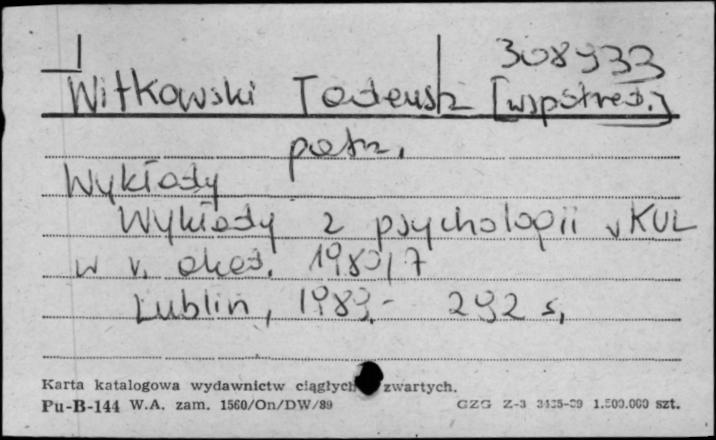 308933
Witkowski Tadeusz [współred.]
patrz.
Wykłady
Wykłady z psychologii w KUL
w r. akad. 1980/7
Lublin, 1989.- 292 s.
Karta katalogowa wydawnictw ciągłych zwartych.
Pu-B-144 W.A. zam. 1560/On/DW/89 GZG Z-3 1.500.000 szt.